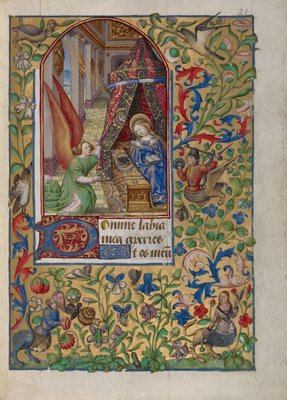 21
Domine labia
mea aperies
et os meū